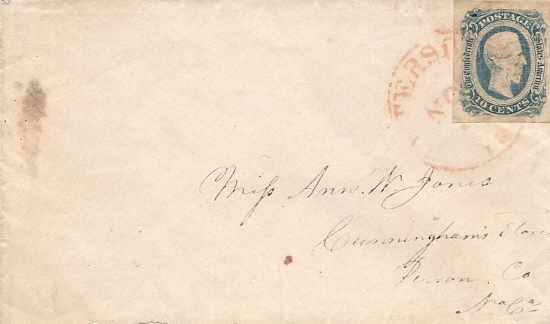 POSTAGE
The Confederate States America
10 CENTS
TERS
NO
Miss Ann. W Jones
Cunningham's Store
Person. Co
No Ca